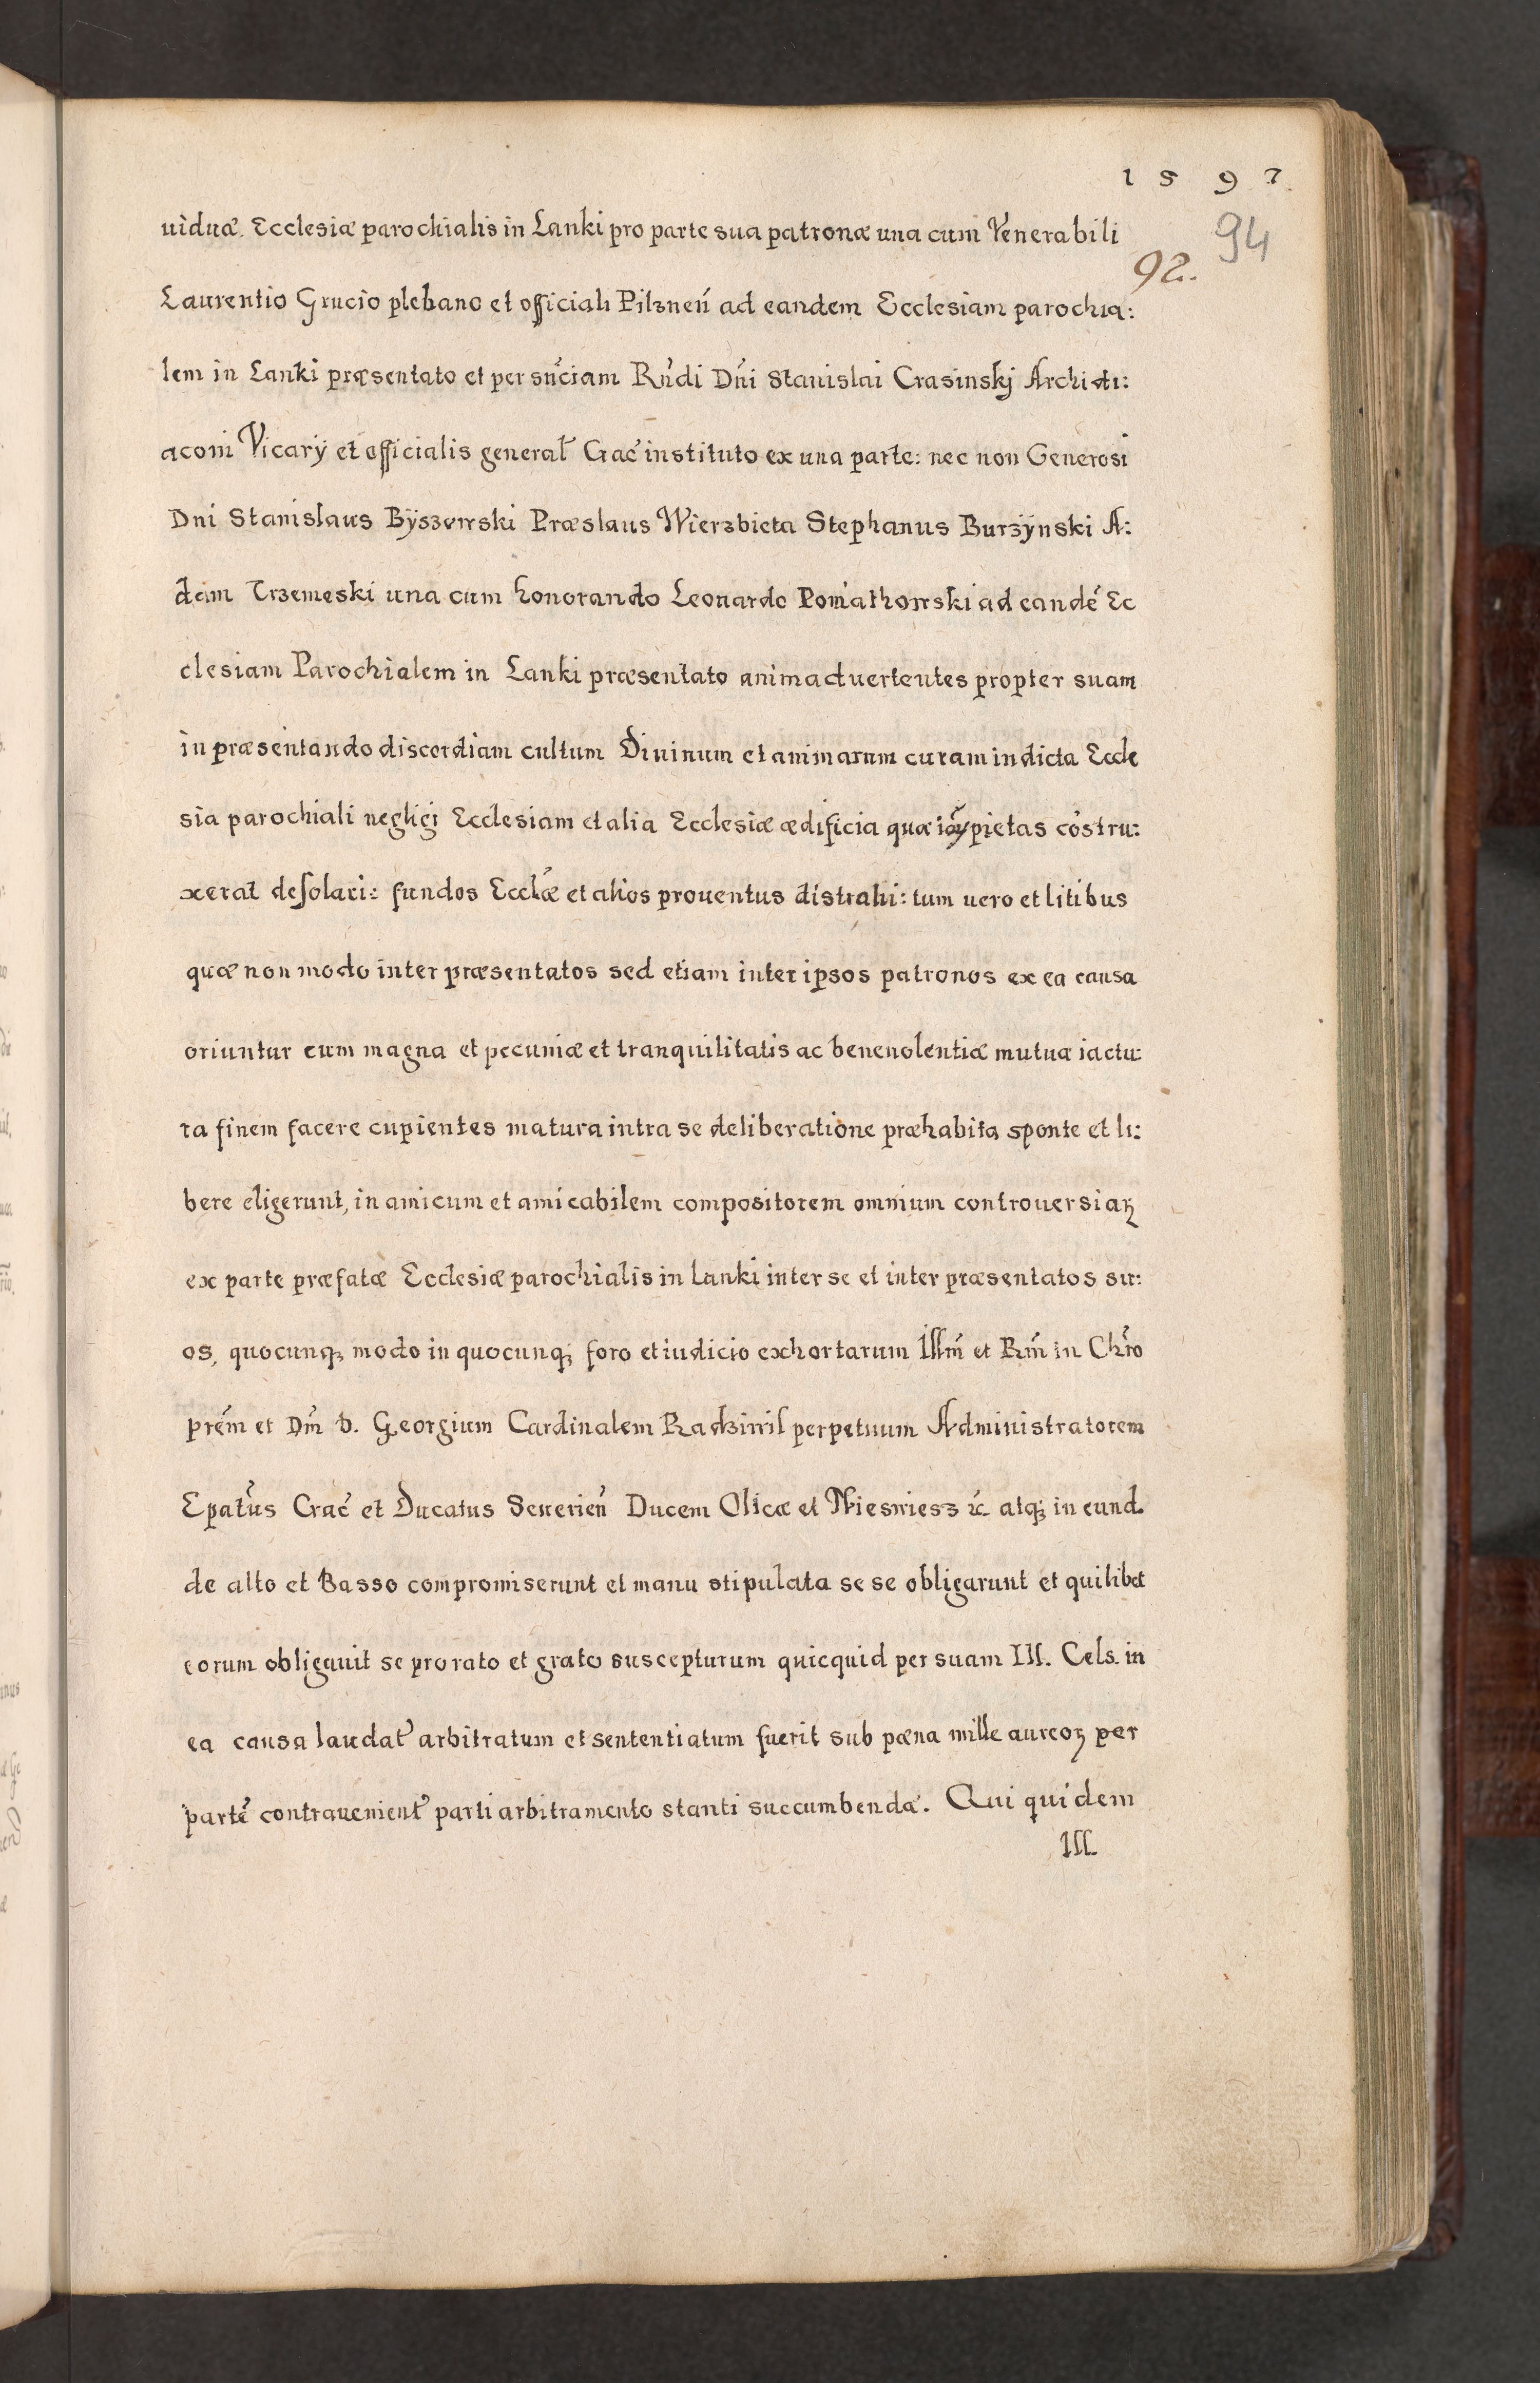 1597
94
uiduæ. Ecclesiæ parochialis in Lanki pro parte sua patronæ una cum Venerabili
92.
Laurentio Grucio plebano et officiali Pilznen̄ ad eandem Ecclesiam parochia:
lem in Lanki præsentato et per sn̄ciam Rn̄di Dn̄i Stanislai Crasinskj Archidi:
aconi Vicarÿ et officialis general̃ Crac̃ instituto ex una parte: nec non Generosi
Dni Stanislaus Bÿszewski Præslaus Wierzbieta Stephanus Burzÿnski A:
dam Trzemeski una cum honorando Leonardo Poniathowski ad eandé Ec
clesiam Parochialem in Lanki præsentato animaduertentes propter suam
in præsentando discordiam cultum Diuinum et animarum curam in dicta Eccle
sia parochiali negligi Ecclesiam et alia Ecclesiæ ædificia quæ pietas cóstru:
xerat desolari: fundos Eccl̃æ et alios prouentus distrahi: tum uero et litibus
quæ non modo inter præsentatos sed etiam inter ipsos patronos ex ea causa
oriuntur cum magna et pecuniæ et tranquilitatis ac beneuolentiæ mutuæ iactu:
ra finem facere cupientes matura intra se deliberatione præhabita sponte et li:
bere eligerunt, in amicum et amicabilem compositorem omnium controuersiaꝝ
ex parte præfatæ Ecclesiæ parochialis in Lanki inter se et inter præsentatos su:
os, quocunqꝫ modo in quocunqꝫ foro et iudicio exhortarum Illm̃ et Rm̃ in Chr̃o
prẽm et Dm̃ D. Georgium Cardinalem Radziwil perpetuum Administratorem
Epatũs Crac̃ et Ducatus Seuerien̄ Ducem Olicæ et Nieswiesz ꝛc̃. atqꝫ in eund.
de alto et Basso compromiserunt et manu stipulata se se obligarunt et quilibet
eorum obligauit se pro rato et grato suscepturum quicquid per suam Ill. Cels. in
ea causa laudat̃ arbitratum et sententiatum fuerit sub pæna mille aureoꝝ per
partẽ contrauenient̃ parti arbitramento stanti succumbenda. Qui quidem
Ill.